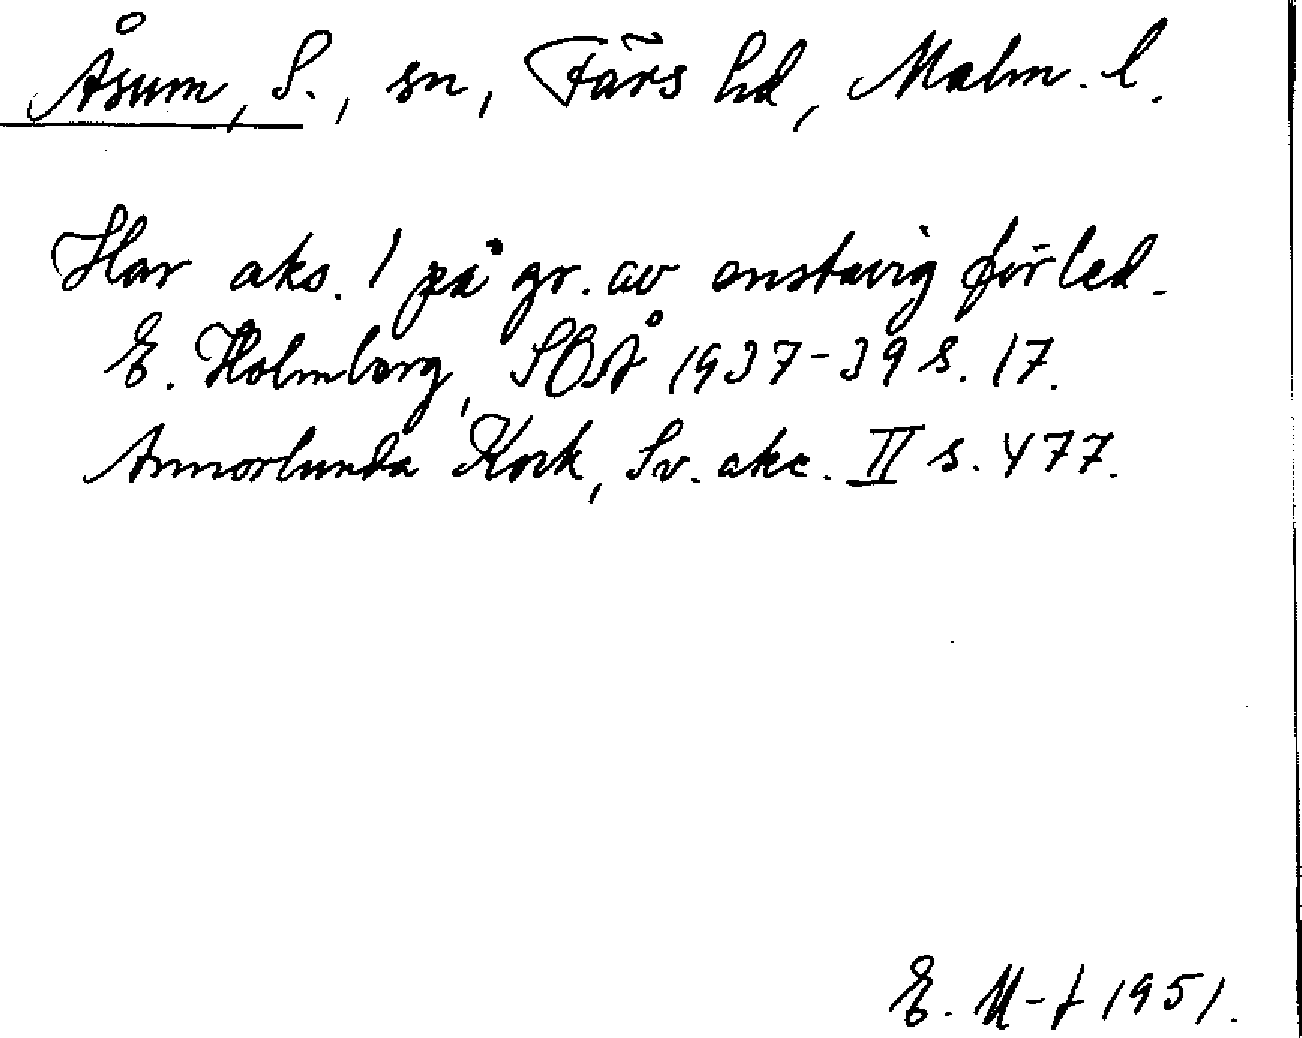 Åsum, S., sn, Färs hd, Malm. l.
Har aks. 1 på gr. av enstavig förled.
E. Holmberg, SOSÅ 1937-39 s. 17.
Annorlunda Kock, Sv. akc. II s. 477.
E. M-f 1951.